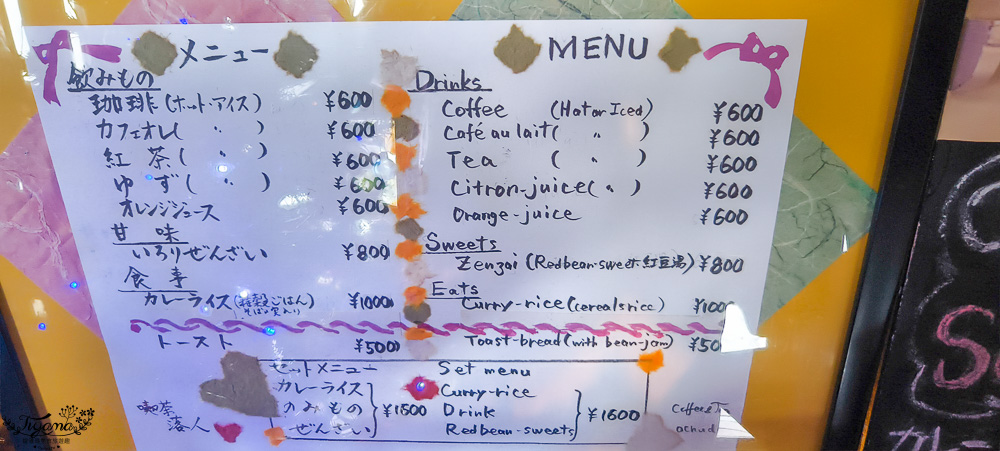 メニュー
飲みもの
珈琲(ホット・アイス) ¥600
カフェオレ( 〃 ) ¥600
紅茶( 〃 ) ¥600
ゆず( 〃 ) ¥600
オレンジジュース ¥600
甘味
いろりぜんざい ¥800
食事
カレーライス(雑穀ごはん そばの実入り) ¥1000
トースト ¥500
セットメニュー
カレーライス
のみもの ¥1600
ぜんざい
喫茶
落人
MENU
Drinks
Coffee (Hot or Iced) ¥600
Café au lait( 〃 ) ¥600
Tea ( 〃 ) ¥600
Citron-juice( 〃 ) ¥600
Orange-juice ¥600
Sweets
Zenzai (Redbean-sweet·紅豆湯) ¥800
Eats
Curry-rice (cereals rice) ¥1000
Toast-bread (with bean-jam) ¥50
Set menu
Curry-rice
Drink ¥1600
Redbean-sweets
Coffee & T
ochud
Tiyama